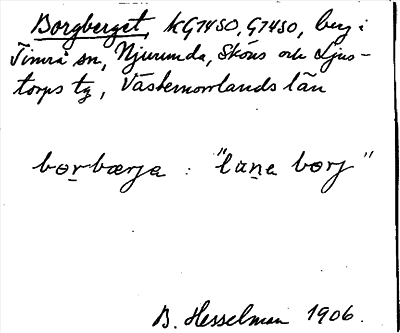 Borgberget, KG74SO, G74SO, berg i
Timrå sn, Njurunda, Sköns och Ljus-
torps tg, Västernorrlands län
borbærja : "lana borj"
B. Hesselman 1906.